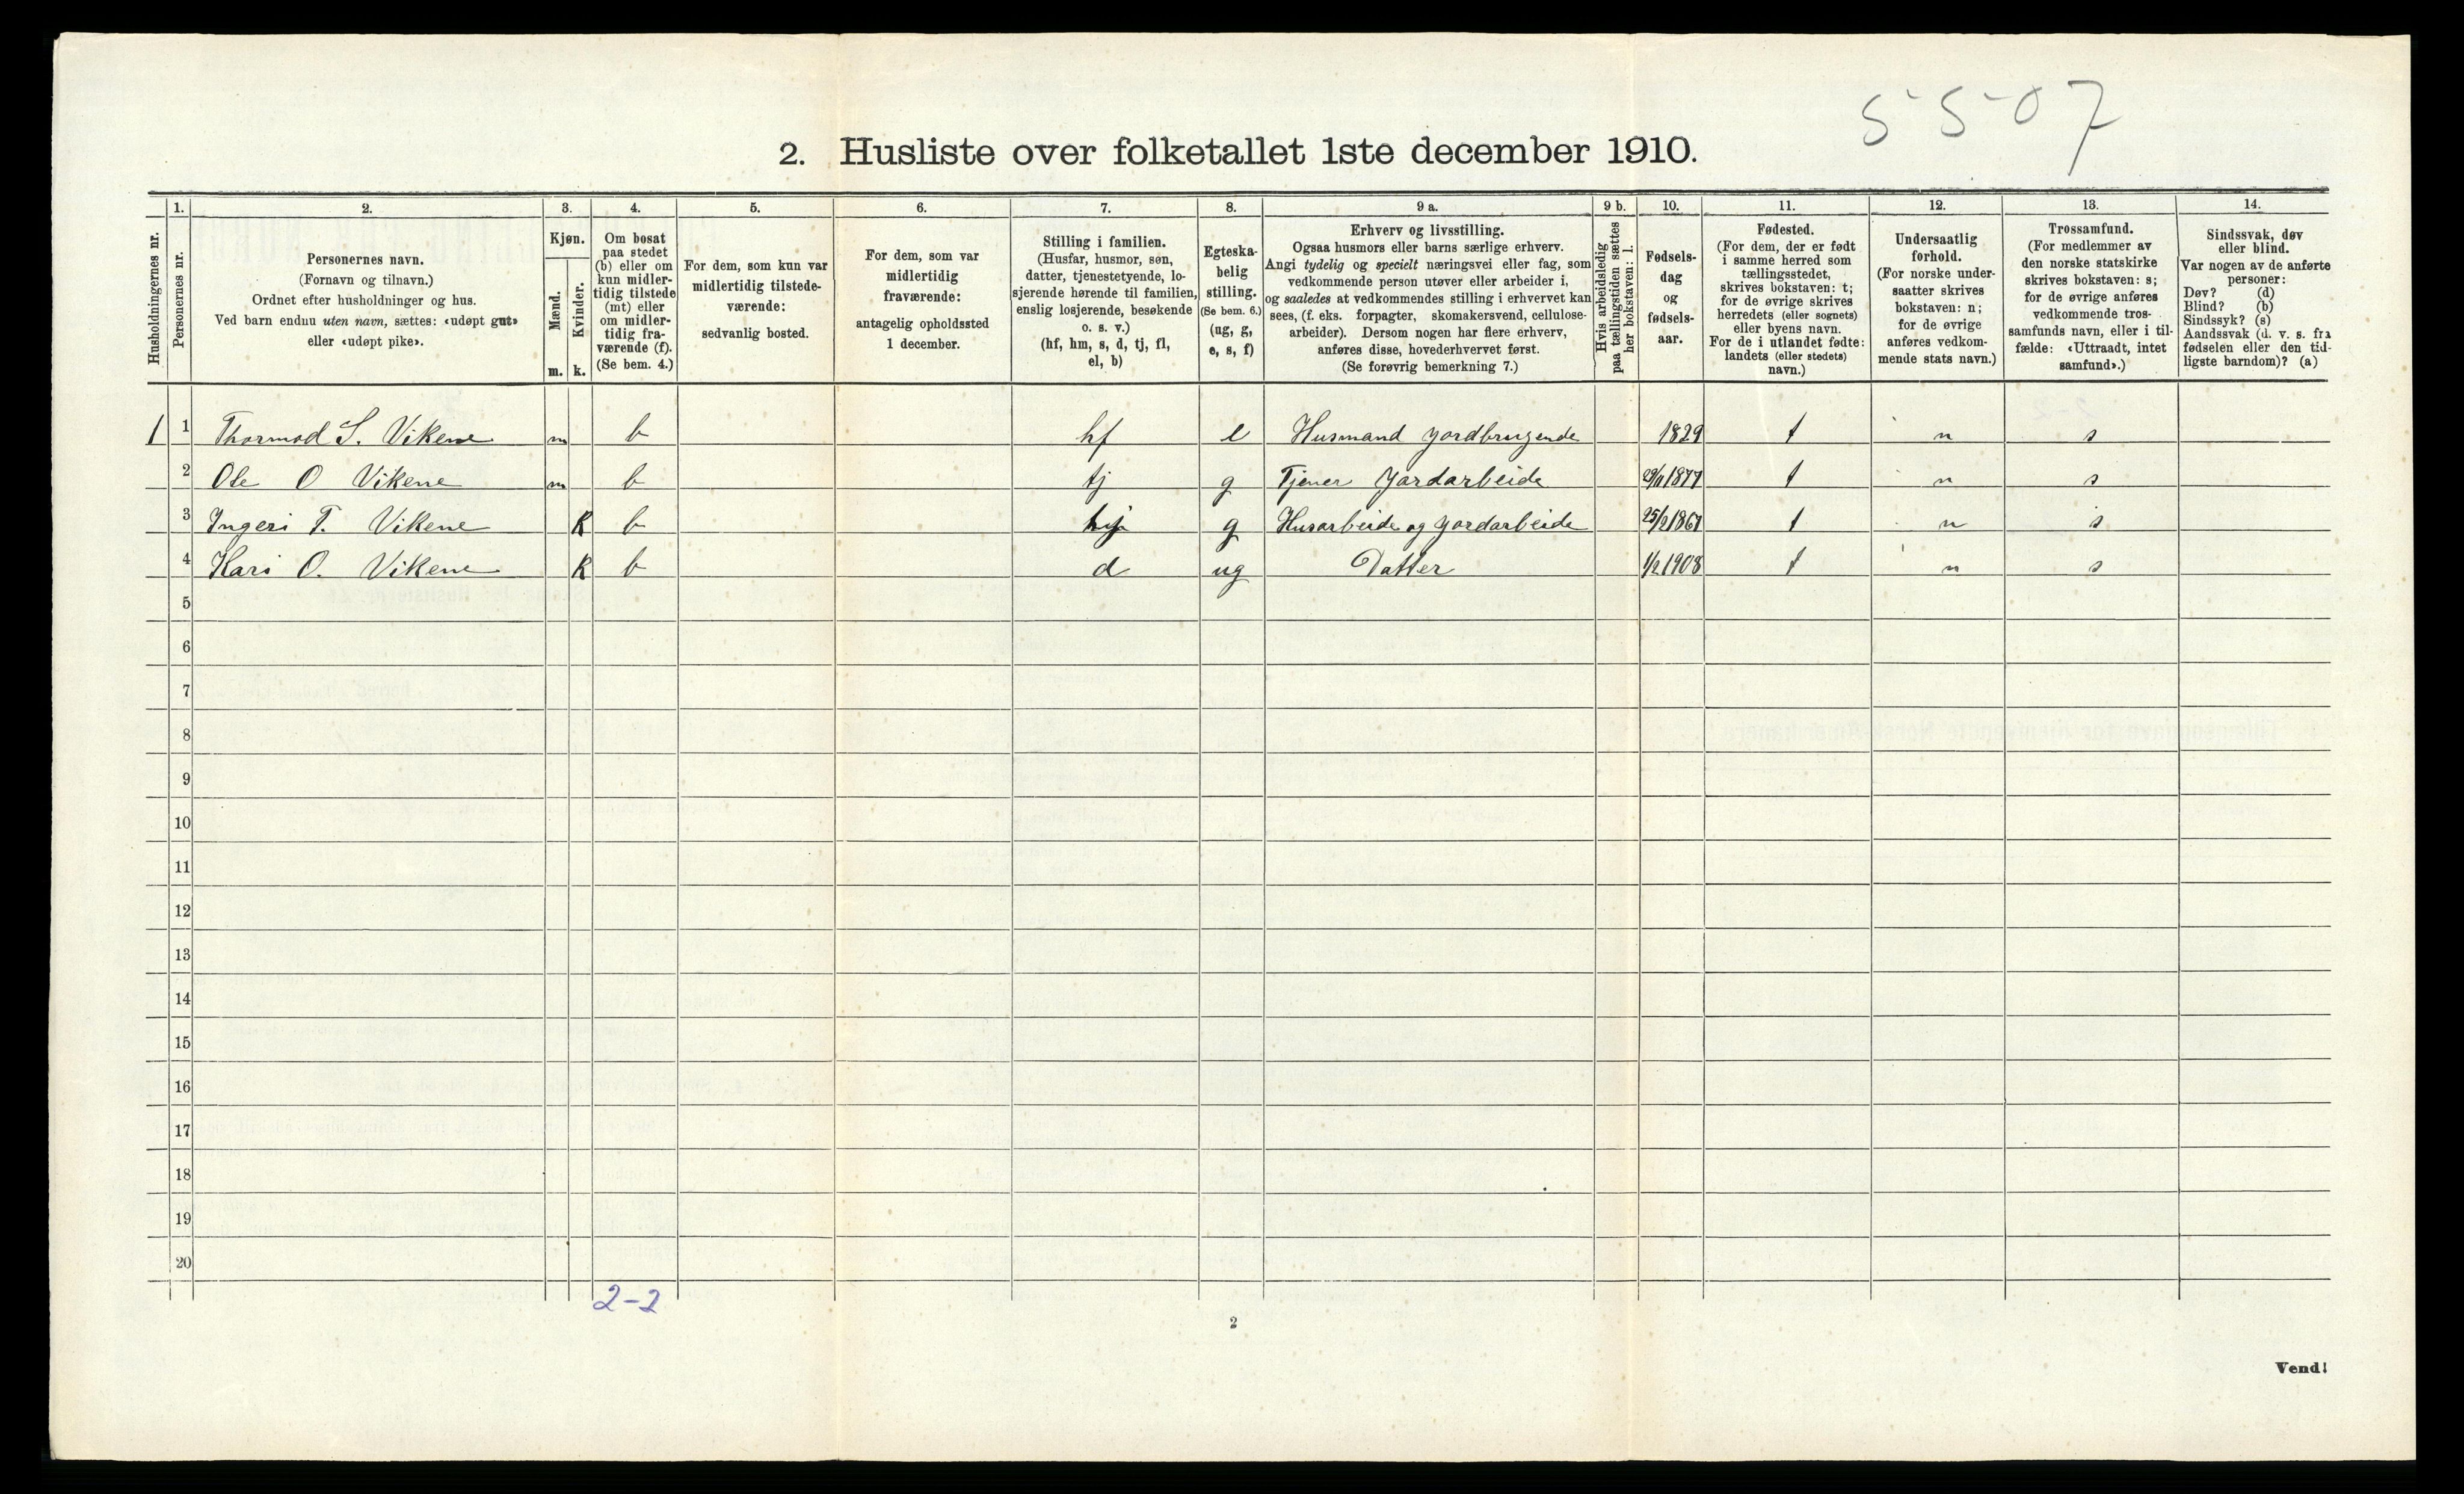 5-5-07
2. Husliste over folketallet 1ste december 1910.
Husholdningernes nr.
1.
Personernes nr.
2.
Personernes navn.
(Fornavn og tilnavn.)
Ordnet efter husholdninger og hus.
Ved barn endnu uten navn, sættes: «udøpt gut»
eller «udøpt pike».
3.
Kjøn.
Mænd.
m.
Kvinder.
k.
4.
Om bosat
paa stedet
(b) eller om
kun midler-
tidig tilstede
(mt) eller
om midler-
tidig fra-
værende (f).
(Se bem. 4.)
5.
For dem, som kun var
midlertidig tilstede-
værende:
sedvanlig bosted.
6.
For dem, som var
midlertidig
fraværende:
antagelig opholdssted
1 december.
7.
Stilling i familien.
(Husfar, husmor, søn,
datter, tjenestetyende, lo-
sjerende hørende til familien,
enslig losjerende, besøkende
o. s. v.)
(hf, hm, s, d, tj, fl,
el, b)
8.
Egteska-
belig
stilling.
(Se bem. 6.)
(ug, g,
e, s, f)
9 a.
Erhverv og livsstilling.
Ogsaa husmors eller barns særlige erhverv.
Angi tydelig og specielt næringsvei eller fag, som
vedkommende person utøver eller arbeider i,
og saaledes at vedkommendes stilling i erhvervet kan
sees, (f. eks. forpagter, skomakersvend, cellulose-
arbeider). Dersom nogen har flere erhverv,
anføres disse, hovederhvervet først.
(Se forøvrig bemerkning 7.)
9 b.
Hvis arbeidsledig
paa tællingstiden sættes
her bokstaven: l.
10.
Fødsels-
dag
og
fødsels-
aar.
11.
Fødested.
(For dem, der er født
i samme herred som
tællingsstedet,
skrives bokstaven: t;
for de øvrige skrives
herredets (eller sognets)
eller byens navn.
For de i utlandet fødte:
landets (eller stedets)
navn.)
12.
Undersaatlig
forhold.
(For norske under-
saatter skrives
bokstaven: n;
for de øvrige
anføres vedkom-
mende stats navn.)
13.
Trossamfund.
(For medlemmer av
den norske statskirke
skrives bokstaven: s;
for de øvrige anføres
vedkommende tros-
samfunds navn, eller i til-
fælde: «Uttraadt, intet
samfund».)
14.
Sindssvak, døv
eller blind.
Var nogen av de anførte
personer:
Døv? (d)
Blind? (b)
Sindssyk? (s)
Aandssvak (d. v. s. fra
fødselen eller den tid-
ligste barndom)? (a)
1 1 Thormod S. Vikene m b hf e Husmand jordbrugende 1829 t n s
2 Ole O Vikene m b tj g Tjener jordarbeide 1877 t n s
3 Ingeri T. Vikene K b g Husarbeide og jordarbeide t n s
4 Kari O. Vikene K b d ug Datter 1/2 1908 t n s
5
6
7
8
9
10
11
12
13
14
15
16
17
18
19
20
2-2
2
Vend!